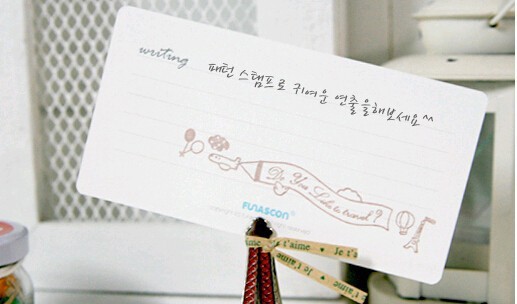 writing
패턴 스탬프로 귀여운 연출을해보세요^^
Do You Like to travel?
FUNASCON
t'aime
t'aime ♥ Je t'a